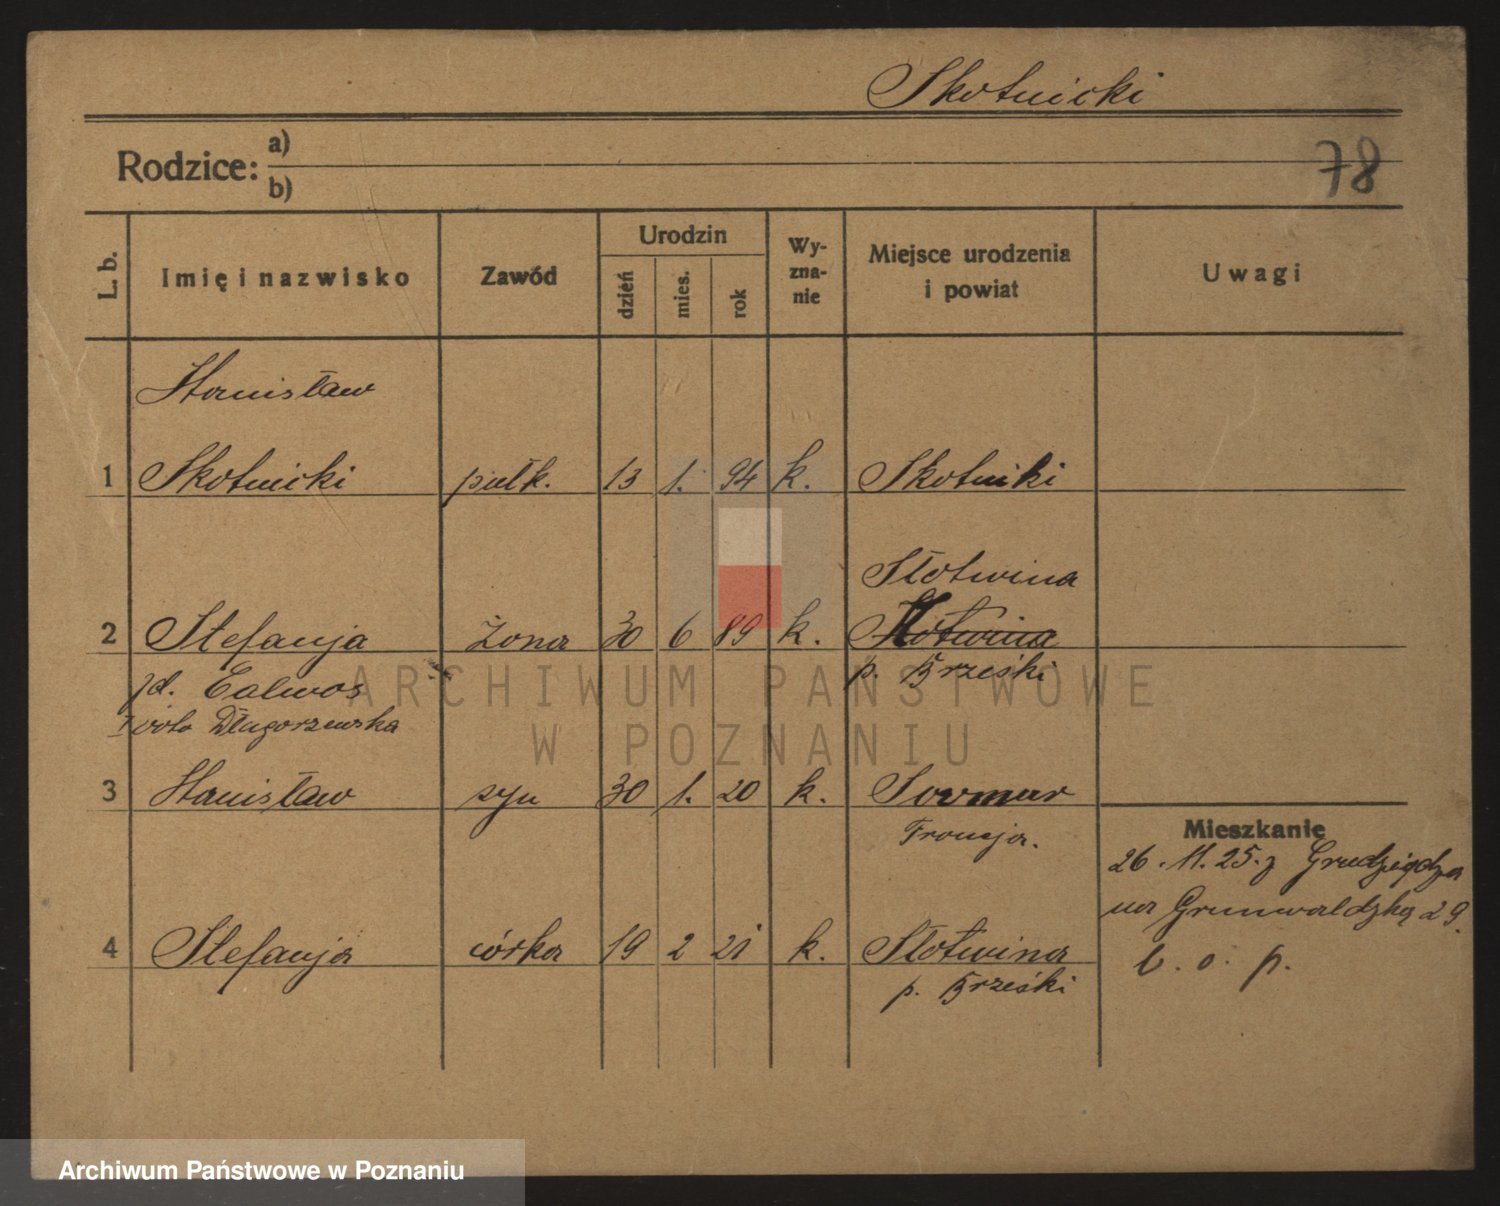 Skotnicki
Rodzice: a)
b)
78
L. b. Imię i nazwisko Zawód Urodzin dzień mies. rok Wy-zna-nie Miejsce urodzenia i powiat Uwagi
Stanisław
1 Skotnicki pułk. 13 1. 94 k. Skotniki
Słotwina
2 Stefanja żona 30 6 89 k. Słotwina
p. Brzeski
zd. Calwos
I voto Długorzewska
ARCHIWUM PAŃSTWOWE
W POZNANIU
3 Stanisław syn 30 1. 20 k.
Francja.
Mieszkanie
26. 11. 25. z Grudziądza
na Grunwaldzką 29.
4 Stefanja córka 19 2 21 k. Słotwina
p. Brzeski
b. o. p.
Archiwum Państwowe w Poznaniu